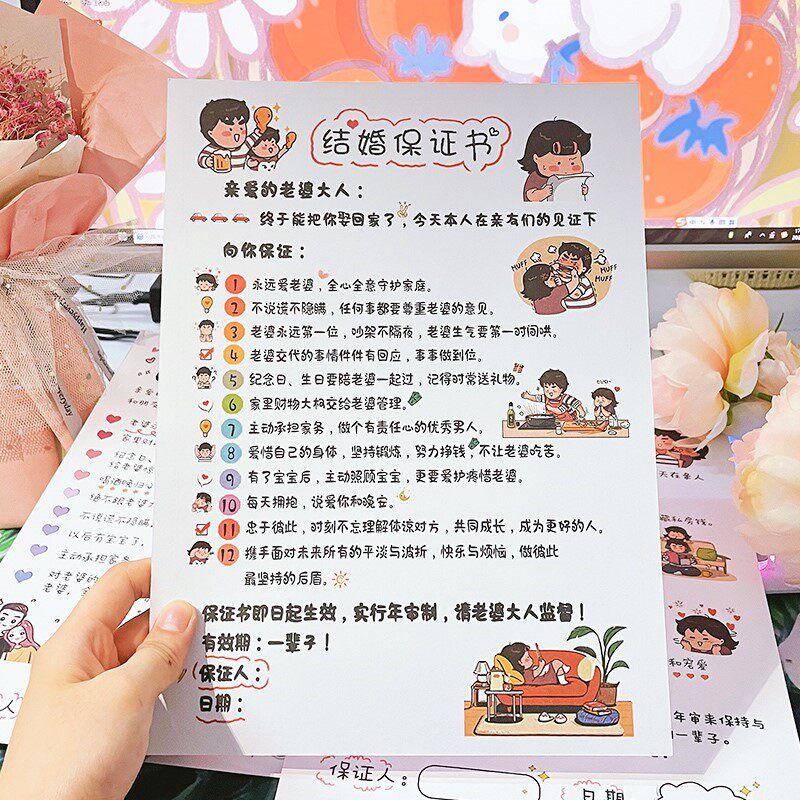 结婚保证书
亲爱的老婆大人：
终于能把你娶回家了，今天本人在亲友们的见证下
向你保证：
1 永远爱老婆，全心全意守护家庭。
2 不说谎不隐瞒，任何事都要尊重老婆的意见。
3 老婆永远第一位，吵架不隔夜，老婆生气要第一时间哄。
4 老婆交代的事情件件有回应，事事做到位。
5 纪念日、生日要陪老婆一起过，记得时常送礼物。
6 家里财物大权交给老婆管理。
7 主动承担家务，做个有责任心的优秀男人。
8 爱惜自己的身体，坚持锻炼，努力挣钱，不让老婆吃苦。
9 有了宝宝后，主动照顾宝宝，更要爱护疼惜老婆。
10 每天拥抱，说爱你和晚安。
11 忠于彼此，时刻不忘理解体谅对方，共同成长，成为更好的人。
12 携手面对未来所有的平淡与波折，快乐与烦恼，做彼此
最坚持的后盾。
保证书即日起生效，实行年审制，请老婆大人监督！
有效期：一辈子！
保证人：
日期：
MUFF
MUFF
MUFF
家里财
纪念日、
给老婆
喝酒晚归
绝不跟老婆
不说谎不隐瞒，
以后有宝宝了，
主动承担家务
对老婆的
老婆，全
天在亲人
私房钱。
和宠爱
年审来保持与
一辈子。
保证人：
日期